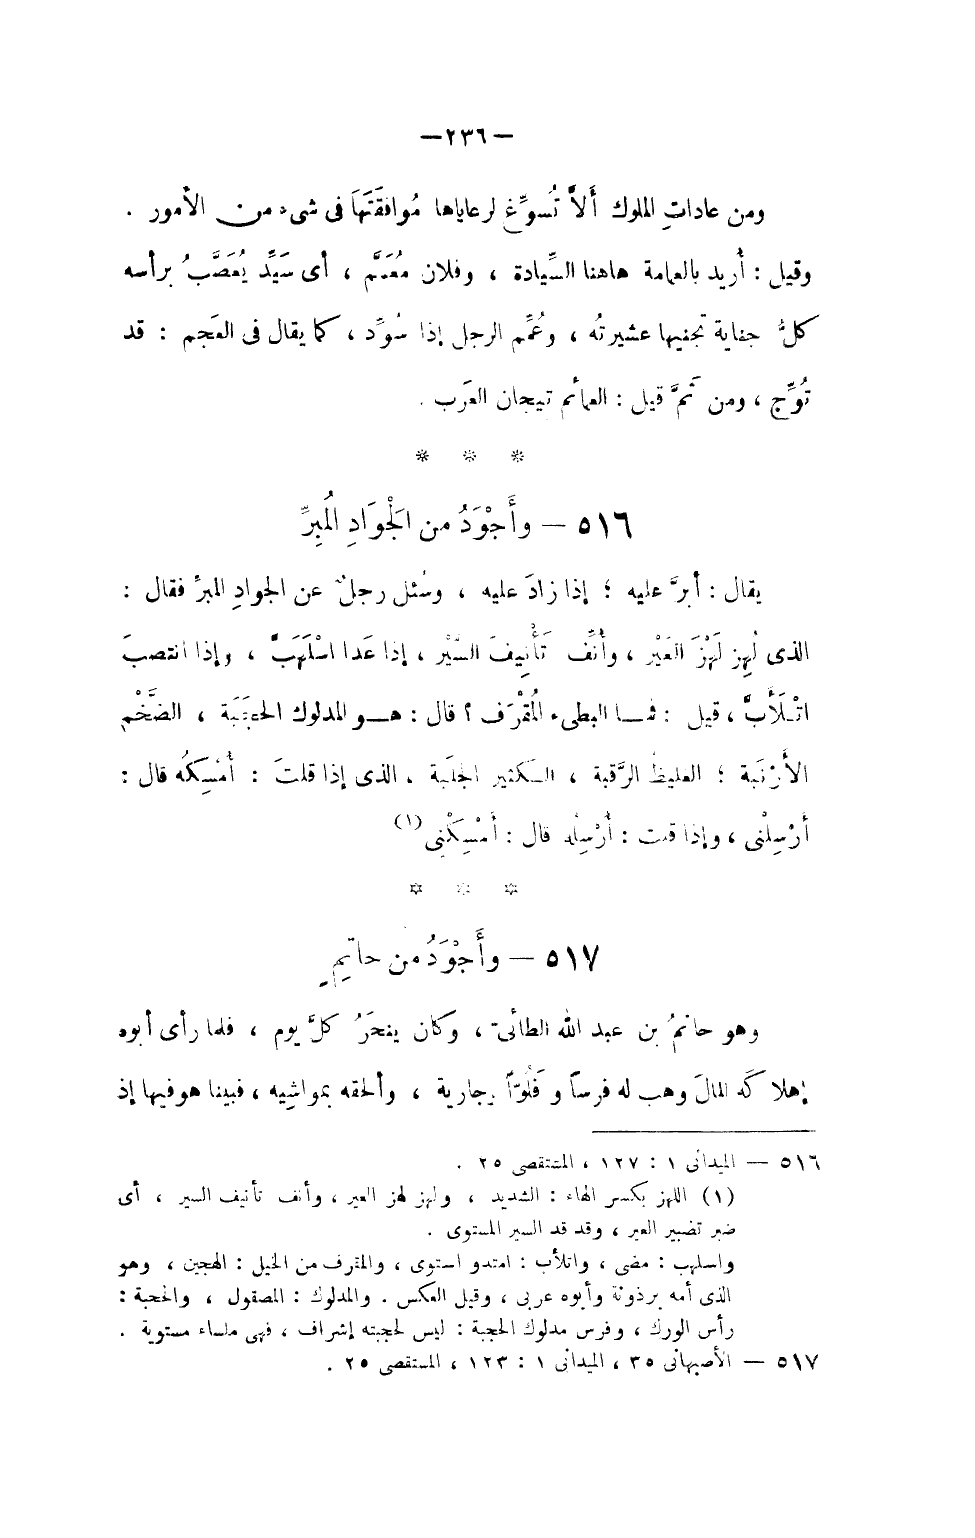 —٢٣٦—
ومن عاداتِ الملوك أَلاَّ تُسوِّغ لرعاياها مُوافقَتَهَا فى شىء من الأمور .
وقيل : أُريد بالعمامة هاهنا السِّيادة ، وفلان مُعَمَّم ، أى سَيِّد يُعَصَّبُ برأسه
كلُّ جناية تجنيها عشيرتُه ، وعُمِّم الرجل إذا سُوِّد ، كما يقال فى العَجم : قد
تُوِّج ، ومن ثَمَّ قيل : العمائم تيجان العَرب .
* * *
٥١٦ — وأَجْوَدُ من الجْوَادِ المُبِرِّ
يقال : أبرَّ عليه ؛ إذا زادَ عليه ، وسُئل رجلٌ عن الجوادِ المبرِّ فقال :
الذى لُهِز لَهْزَ العَيْر ، وأُنِّف تَأْنِيفَ السَّيْر ، إذا عَدا اسْلَهَبَّ ، وإذا انتصبَ
اتْلَأَبَّ ، قيل : فما البطىء المُقْرَف ؟ قال : هو المدلوك الحجَبَة ، الضَّخْم
الأَرْنَبة ؛ الغليظُ الرَّقبة ، الكثير الجلَبة ، الذى إذا قلتَ : أَمْسِكْه قال :
أَرْسِلْنى ، وإذا قلت : أَرْسِلْه قال : أَمْسِكْنِى (١)
* * *
٥١٧ — وأَجْوَدُ من حاتِمٍ
وهو حاتمُ بن عبد الله الطائىّ ، وكان ينحَرُ كلَّ يوم ، فلما رأى أبوه
إهلاكَه المالَ وهب له فرساً وفَلُوّاً وجارية ، وألحقه بمواشِيه ، فبينا هو فيها إذ
٥١٦ — الميدانى ١ : ١٢٧ ، المستقصى ٢٥ .
(١) اللهز بكسر الهاء : الشديد ، ولهز لهز العير ، وأنف تأنيف السير ، أى
ضبر تضبير العير ، وقد قد السير المستوى .
واسلهب : مضى ، واتلأب : امتد واستوى ، والمقرف من الخيل : الهجين ، وهو
الذى أمه برذونة وأبوه عربى ، وقيل العكس . والمدلوك : المصقول ، والحجبة :
رأس الورك ، وفرس مدلوك الحجبة : ليس لحجبته إشراف ، فهى ملساء مستوية .
٥١٧ — الأصبهانى ٣٥ ، الميدانى ١ : ١٢٣ ، المستقصى ٢٥ .